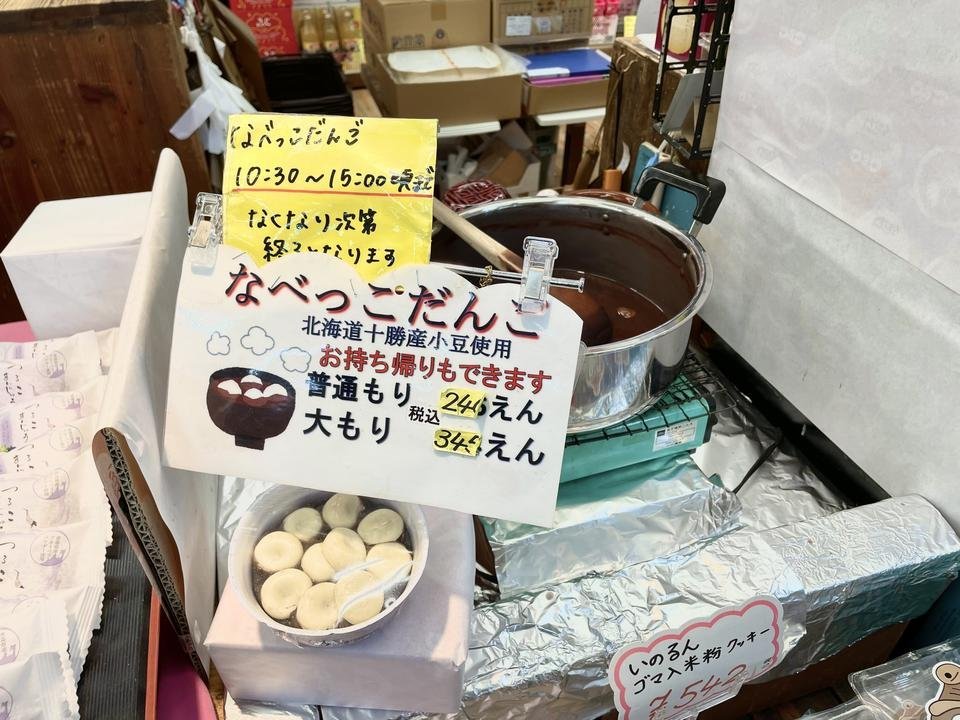 なべっこだんご
10:30～15:00頃まで
なくなり次第
終了となります
なべっこだんご
北海道十勝産小豆使用
お持ち帰りもできます
普通もり 246えん
税込
大もり 345えん
いのるん
ゴマ入米粉クッキー